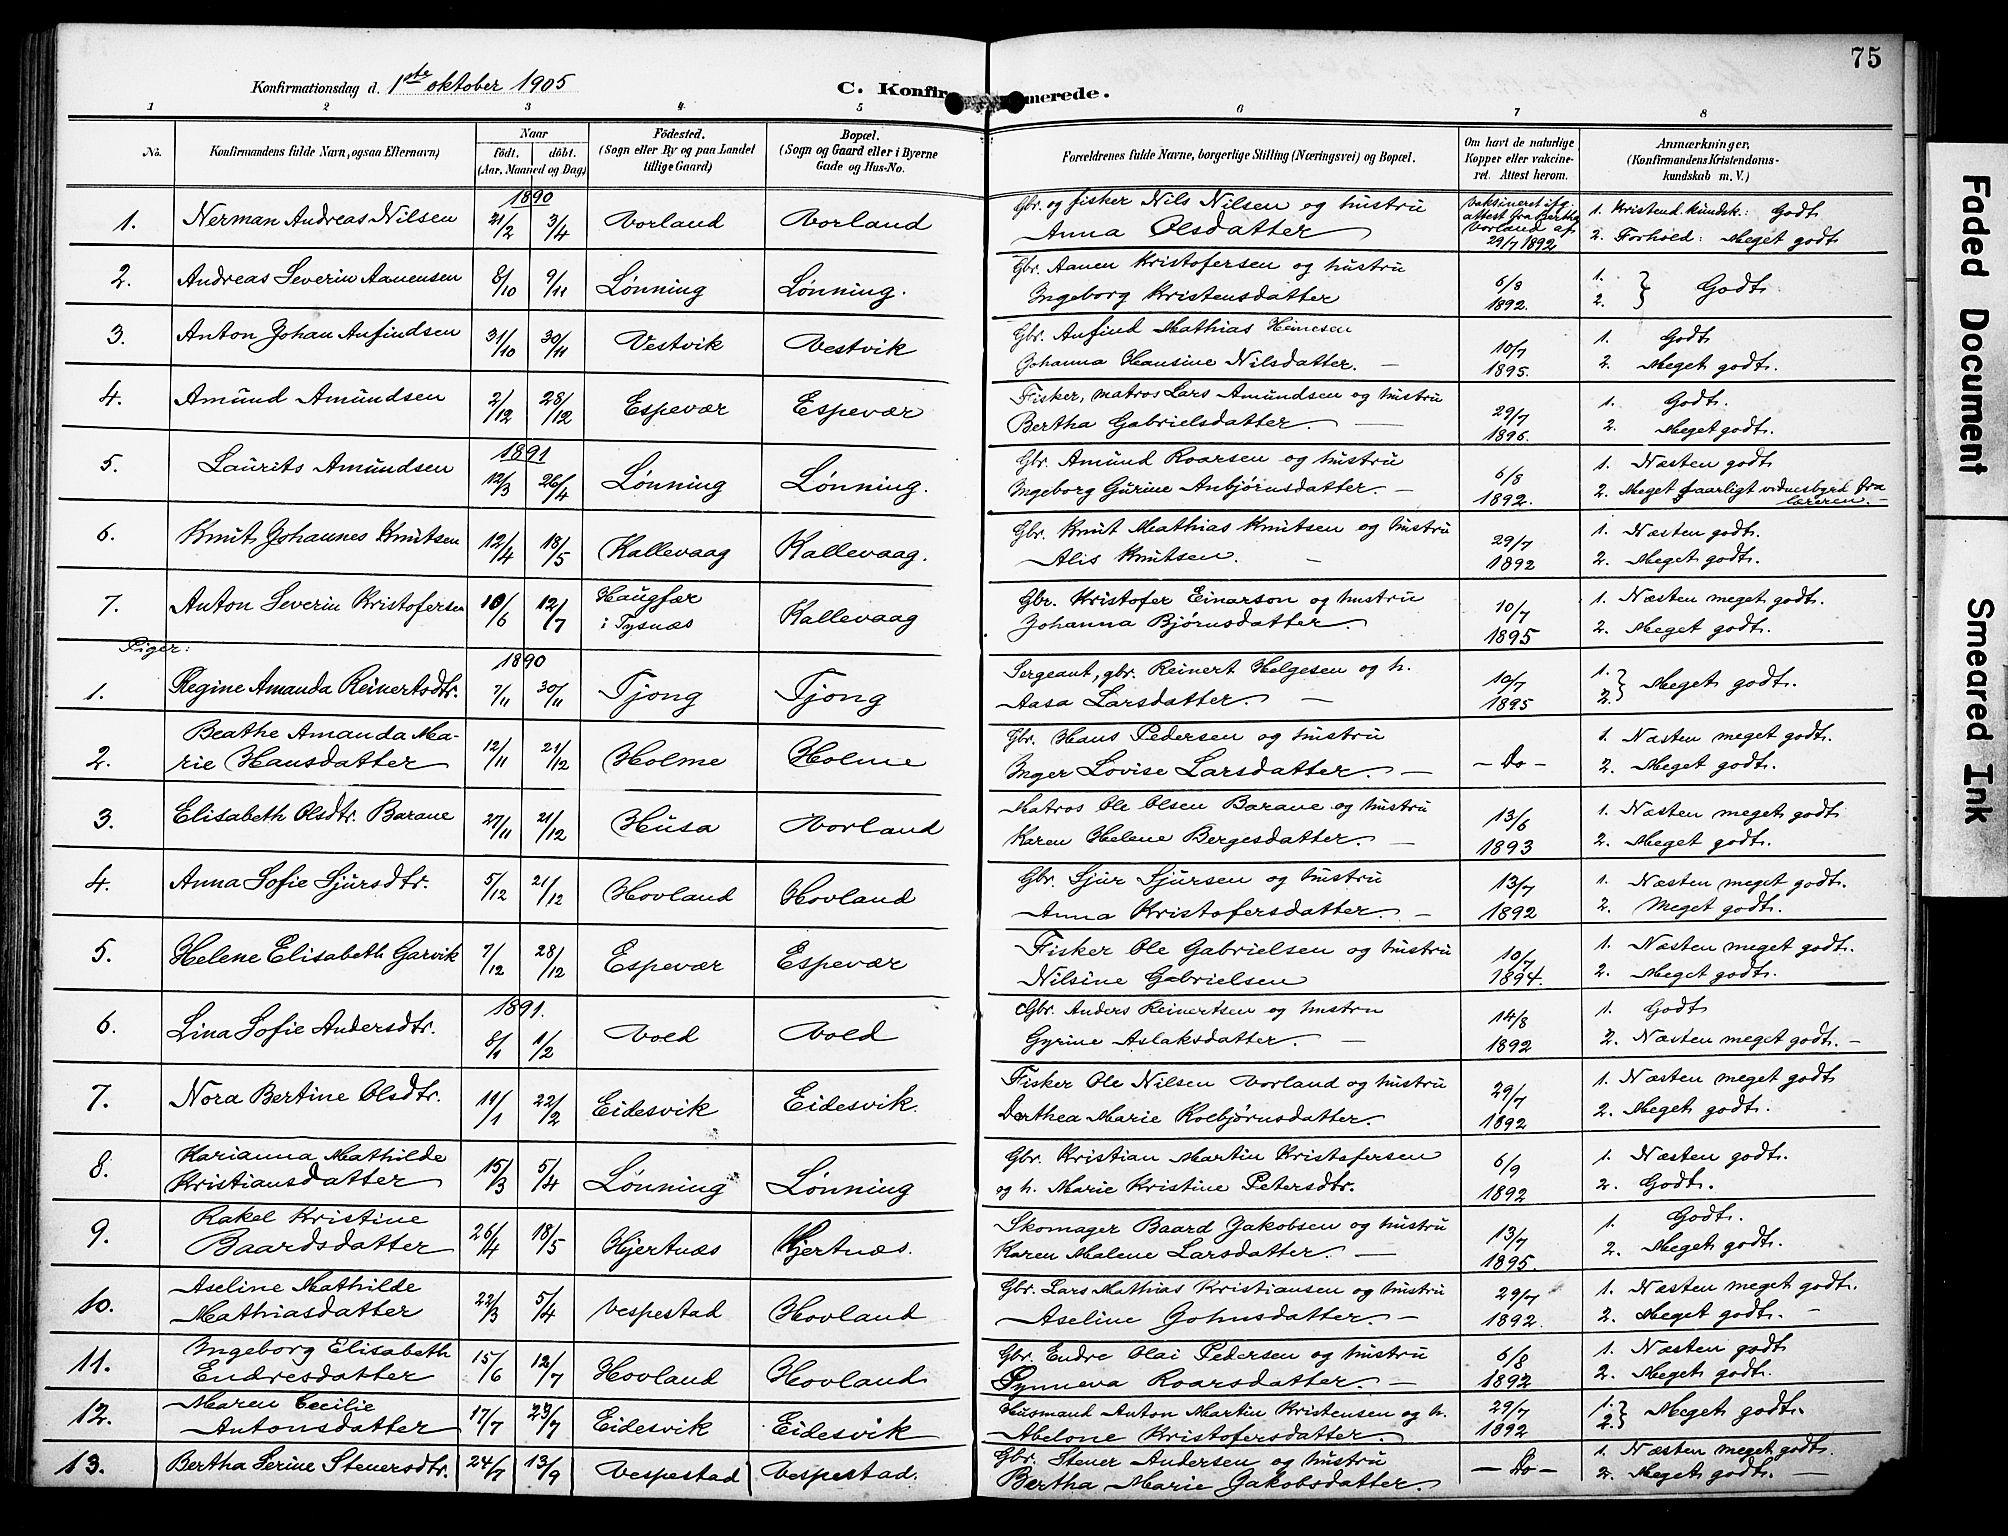 75
Konfirmationsdag d. 1ste oktober 1905
C. Konfirmerede.
1 2 3 4 5 6 7 8
No.
Konfirmandens fulde Navn, ogsaa Efternavn)
Naar
födt. döbt.
(Aar, Maaned og Dag)
Födested.
(Sogn eller By og paa Landet
tillige Gaard)
Bopæl.
(Sogn og Gaard eller i Byerne
Gade og Hus-No.
Forældrenes fulde Navne, borgerlige Stilling (Næringsvei) og Bopæl.
Om havt de naturlige
Kopper eller vakcine-
ret. Attest herom.
Anmærkninger,
(Konfirmandens Kristendoms-
kundskab m. V.)
1890
1. Nerman Andreas Nilsen 21/2 3/4 Vorland Vorland Gbr. og fisker Nils Nilsen og hustru
Anna Olsdatter
vaksineret ifg.
attest fra Bertha
Vorland af
29/7 1892
1. Kristend. kundsk.: Godt
2. Forhold: Meget godt
2. Andreas Severin Aanensen 8/10 9/11 Lønning Lønning. Gbr. Aanen Kristofersen og hustru
Ingeborg Kristensdatter
6/8
1892.
1.
2. } Godt
3. Anton Johan Anfindsen 31/10 30/11 Vestvik Vestvik Gbr. Anfind Mathias Heinesen
Johanna Hansine Nilsdatter. —
10/7
1895.
1. Godt
2. Meget godt.
4. Amund Amundsen 2/12 28/12 Espevær Espevær Fisker, matros Lars Amundsen og hustru
Bertha Gabrielsdatter. —
29/7
1896.
1. Godt.
2. Meget godt.
1891
5. Laurits Amundsen 12/3 26/4 Lønning Lønning. Gbr. Amund Roarsen og hustru
Ingeborg Gurine Anbjørnsdatter. —
6/8
1892.
1. Næsten godt
2. Meget daarligt vidnesbyrd fra
læreren. —
6. Knut Johannes Knutsen 12/4 18/5 Kallevaag Kallevaag. Gbr. Knut Mathias Knutsen og hustru
Alis Knutsen. —
29/7
1892
1. Næsten godt.
2. Meget godt.
7. Anton Severin Kristofersen 10/6 12/7 Haugfær
i Tysnæs
Kallevaag Gbr. Kristofer Einarson og hustru
Johanna Bjørnsdatter.
10/7
1895
1. Næsten meget godt.
2. Meget godt.
Piger:
1890
1. Regine Amanda Reinertsdtr. 7/11 30/11 Tjong Tjong Sergeant, gbr. Reinert Helgesen og h.
Aasa Larsdatter. —
10/7
1895
1.
2. } Meget godt.
2. Beathe Amanda Ma-
rie Hansdatter 12/11 21/12 Holme Holme Gbr. Hans Pedersen og hustru
Inger Lovise Larsdatter. —
— Do —
1. Næsten meget godt.
2. Meget godt.
3. Elisabeth Olsdtr. Barane 27/11 21/12 Husa Vorland Matros Ole Olsen Barane og hustru
Karen Helene Bergesdatter. —
13/6
1893
1. Næsten meget godt
2. Meget godt.
4. Anna Sofie Sjursdtr. 5/12 21/12 Hovland Hovland Gbr. Sjur Sjursen og hustru
Anna Kristofersdatter. —
13/7
1892
1. Næsten meget godt.
2. Meget godt.
5. Helene Elisabeth Garvik 7/12 28/12 Espevær Espevær Fisker Ole Gabrielsen og hustru
Nilsine Gabrielsen
10/7
1894.
1. Næsten meget godt.
2. Meget godt.
1891.
6. Lina Sofie Andersdtr. 8/1 1/2 Vold Vold Gbr. Anders Reinertsen og hustru
Gyrine Aslaksdatter. —
14/8
1892
1. Godt
2. Næsten meget godt. —
7. Nora Bertine Olsdtr. 11/1 22/2 Eidesvik Eidesvik. Fisker Ole Nilsen Vorland og hustru
Dorthea Marie Kolbjørnsdatter.
29/7
1892
1. Næsten meget godt
2. Meget godt.
8. Karianna Mathilde
Kristiansdatter 15/3 5/4 Lønning Lønning Gbr. Kristian Martin Kristofersen
og h. Marie Kristine Petersdtr.
6/9
1892
1. Næsten godt.
2. Godt.
9. Rakel Kristine
Baardsdatter 26/4 18/5 Hjertnæs Hjertnæs. Skomager Baard Jakobsen og hustru
Karen Malene Larsdatter. —
13/7
1895.
1. Godt.
2. Meget godt.
10. Aseline Mathilde
Mathiasdatter 22/3 5/4 Vespestad Hovland Gbr. Lars Mathias Kristiansen og hustru
Aseline Johnsdatter. —
29/7
1892.
1. Næsten meget godt.
2. Meget godt. —
11. Ingeborg Elisabeth
Endresdatter 15/6 12/7 Hovland Hovland Gbr. Endre Olai Pedersen og hustru
Synneva Roarsdatter. —
6/8
1892
1. Næsten godt
2. Meget godt.
12. Maren Cecilie
Antonsdatter 17/7 29/7 Eidesvik Eidesvik Husmand Anton Martin Kristensen og h.
Abelone Kristofersdatter.
29/7
1892
1.
2. } Meget godt.
13. Bertha Serine Stenersdtr. 24/7 13/9 Vespestad Vespestad. Gbr. Stener Andersen og hustru
Bertha Marie Jakobsdatter.
— Do —
1. Næsten meget godt.
2. Meget godt. —
Faded Document
Smeared Ink